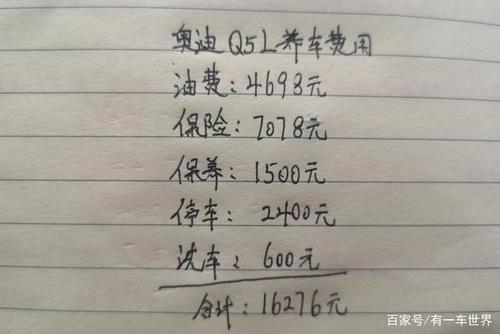 奥迪Q5L养车费用
油费：4698元
保险：7078元
保养：1500元
停车：2400元
洗车：600元
合计：16276元
百家号/有一车世界